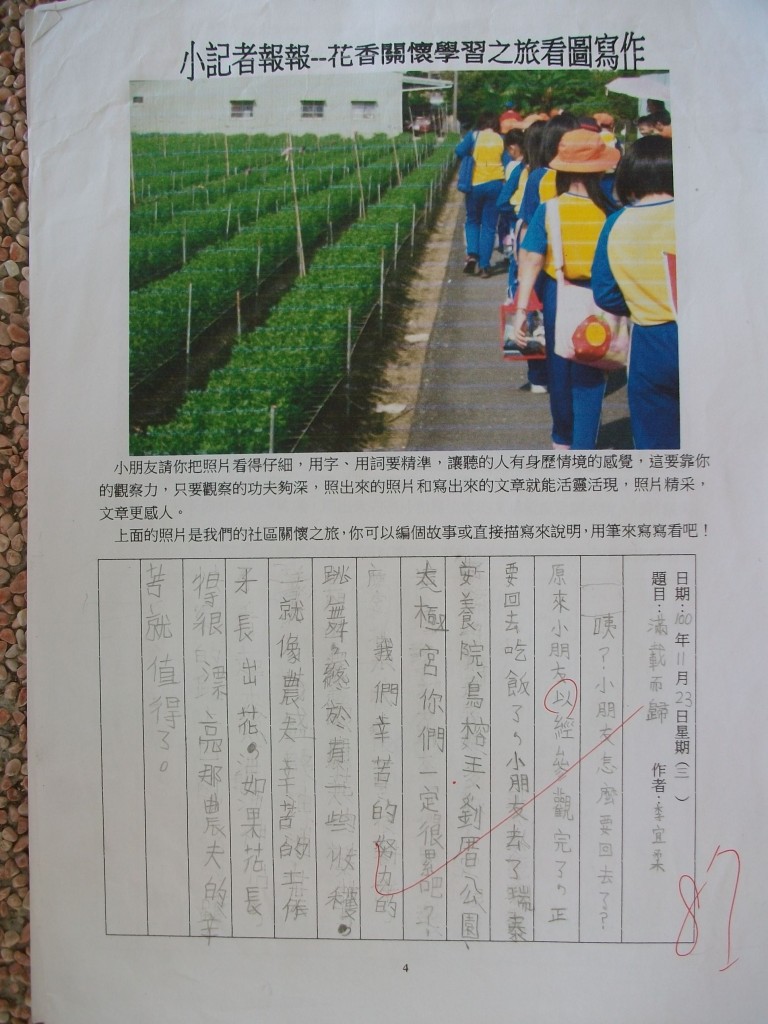 小記者報報--花香關懷學習之旅看圖寫作
小朋友請你把照片看得仔細，用字、用詞要精準，讓聽的人有身歷情境的感覺，這要靠你
的觀察力，只要觀察的功夫夠深，照出來的照片和寫出來的文章就能活靈活現，照片精采，
文章更感人。
上面的照片是我們的社區關懷之旅，你可以編個故事或直接描寫來說明，用筆來寫寫看吧！
日期：100年11月23日星期（三）
題目：滿載而歸 作者：李宜柔
咦？小朋友怎麼要回去了？
原來小朋友以經參觀完了，正
要回去吃飯了，小朋友去了瑞泰
安養院、鳥榕王、劉厝公園、
太極宮你們一定很累吧？
我們辛苦的努力的
跳舞，終於有一些收穫，
就像農夫辛苦的工作
才長出花，如果花長
得很漂亮那農夫的辛
苦就值得了。
87
4